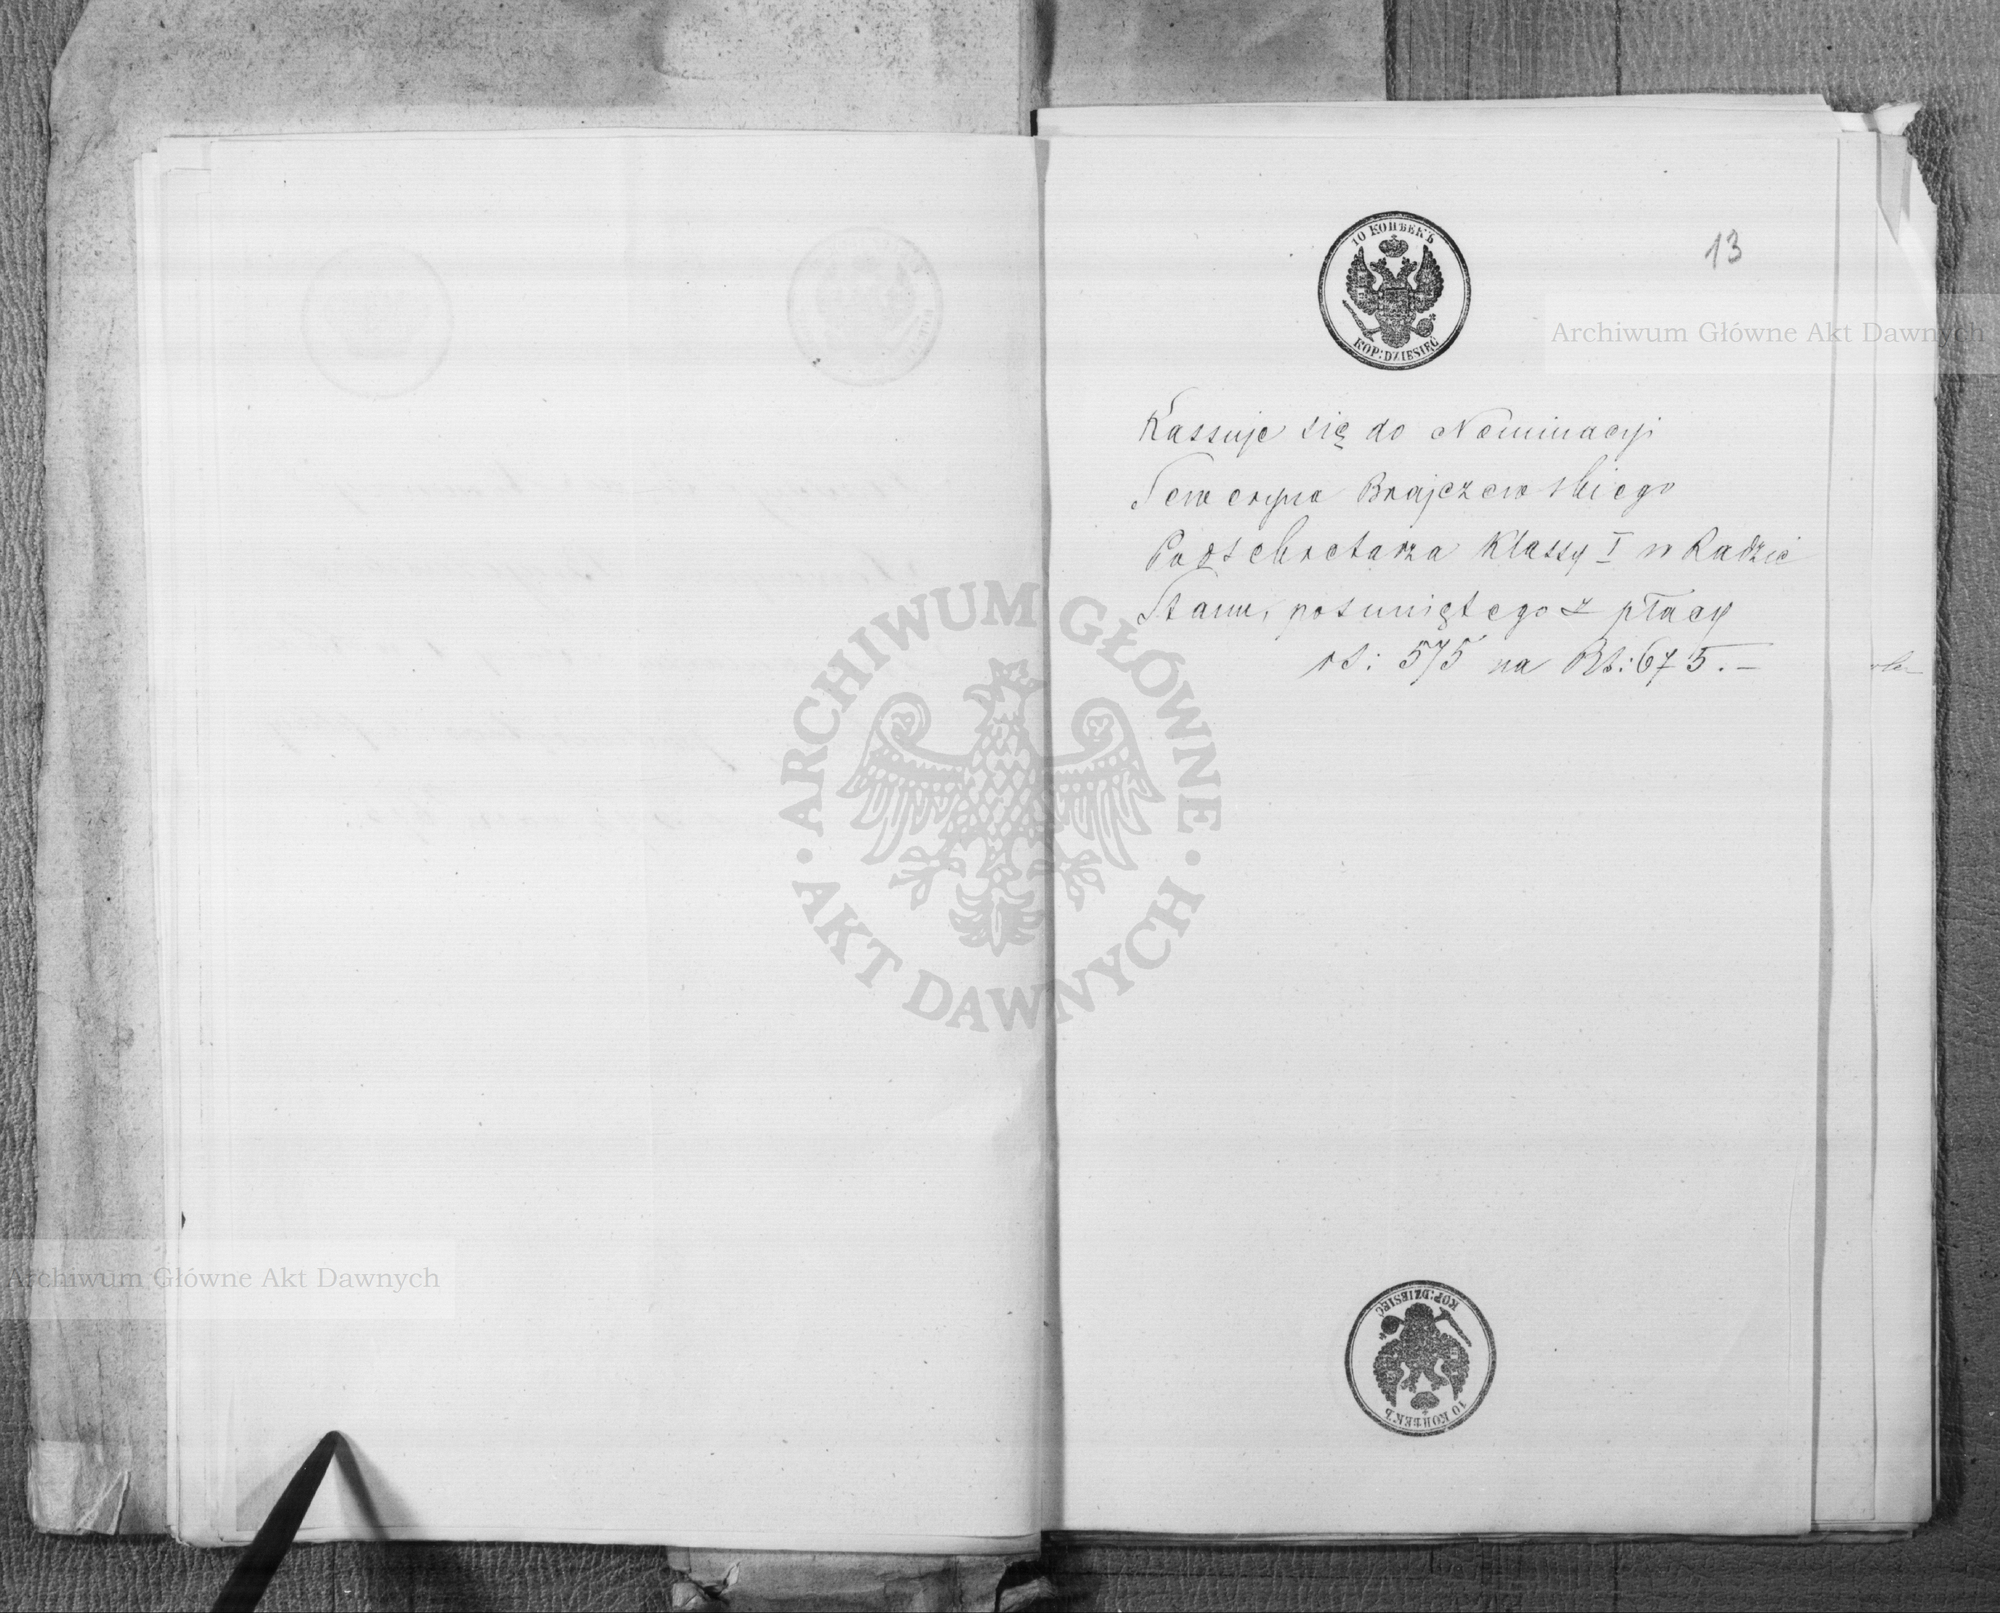 10 КОПѢЕКЪ
KOP: DZIESIĘĆ
13
Archiwum Główne Akt Dawnych
Kassuje się do Nominacyi
Seweryna Brajczewskiego
Podsekretarza Klassy I w Radzie
Stanu, posuniętego z płacy
rs: 575 na Rs: 675. —
ARCHIWUM GŁÓWNE
AKT DAWNYCH
Archiwum Główne Akt Dawnych
KOP: DZIESIĘĆ
10 КОПѢЕКЪ